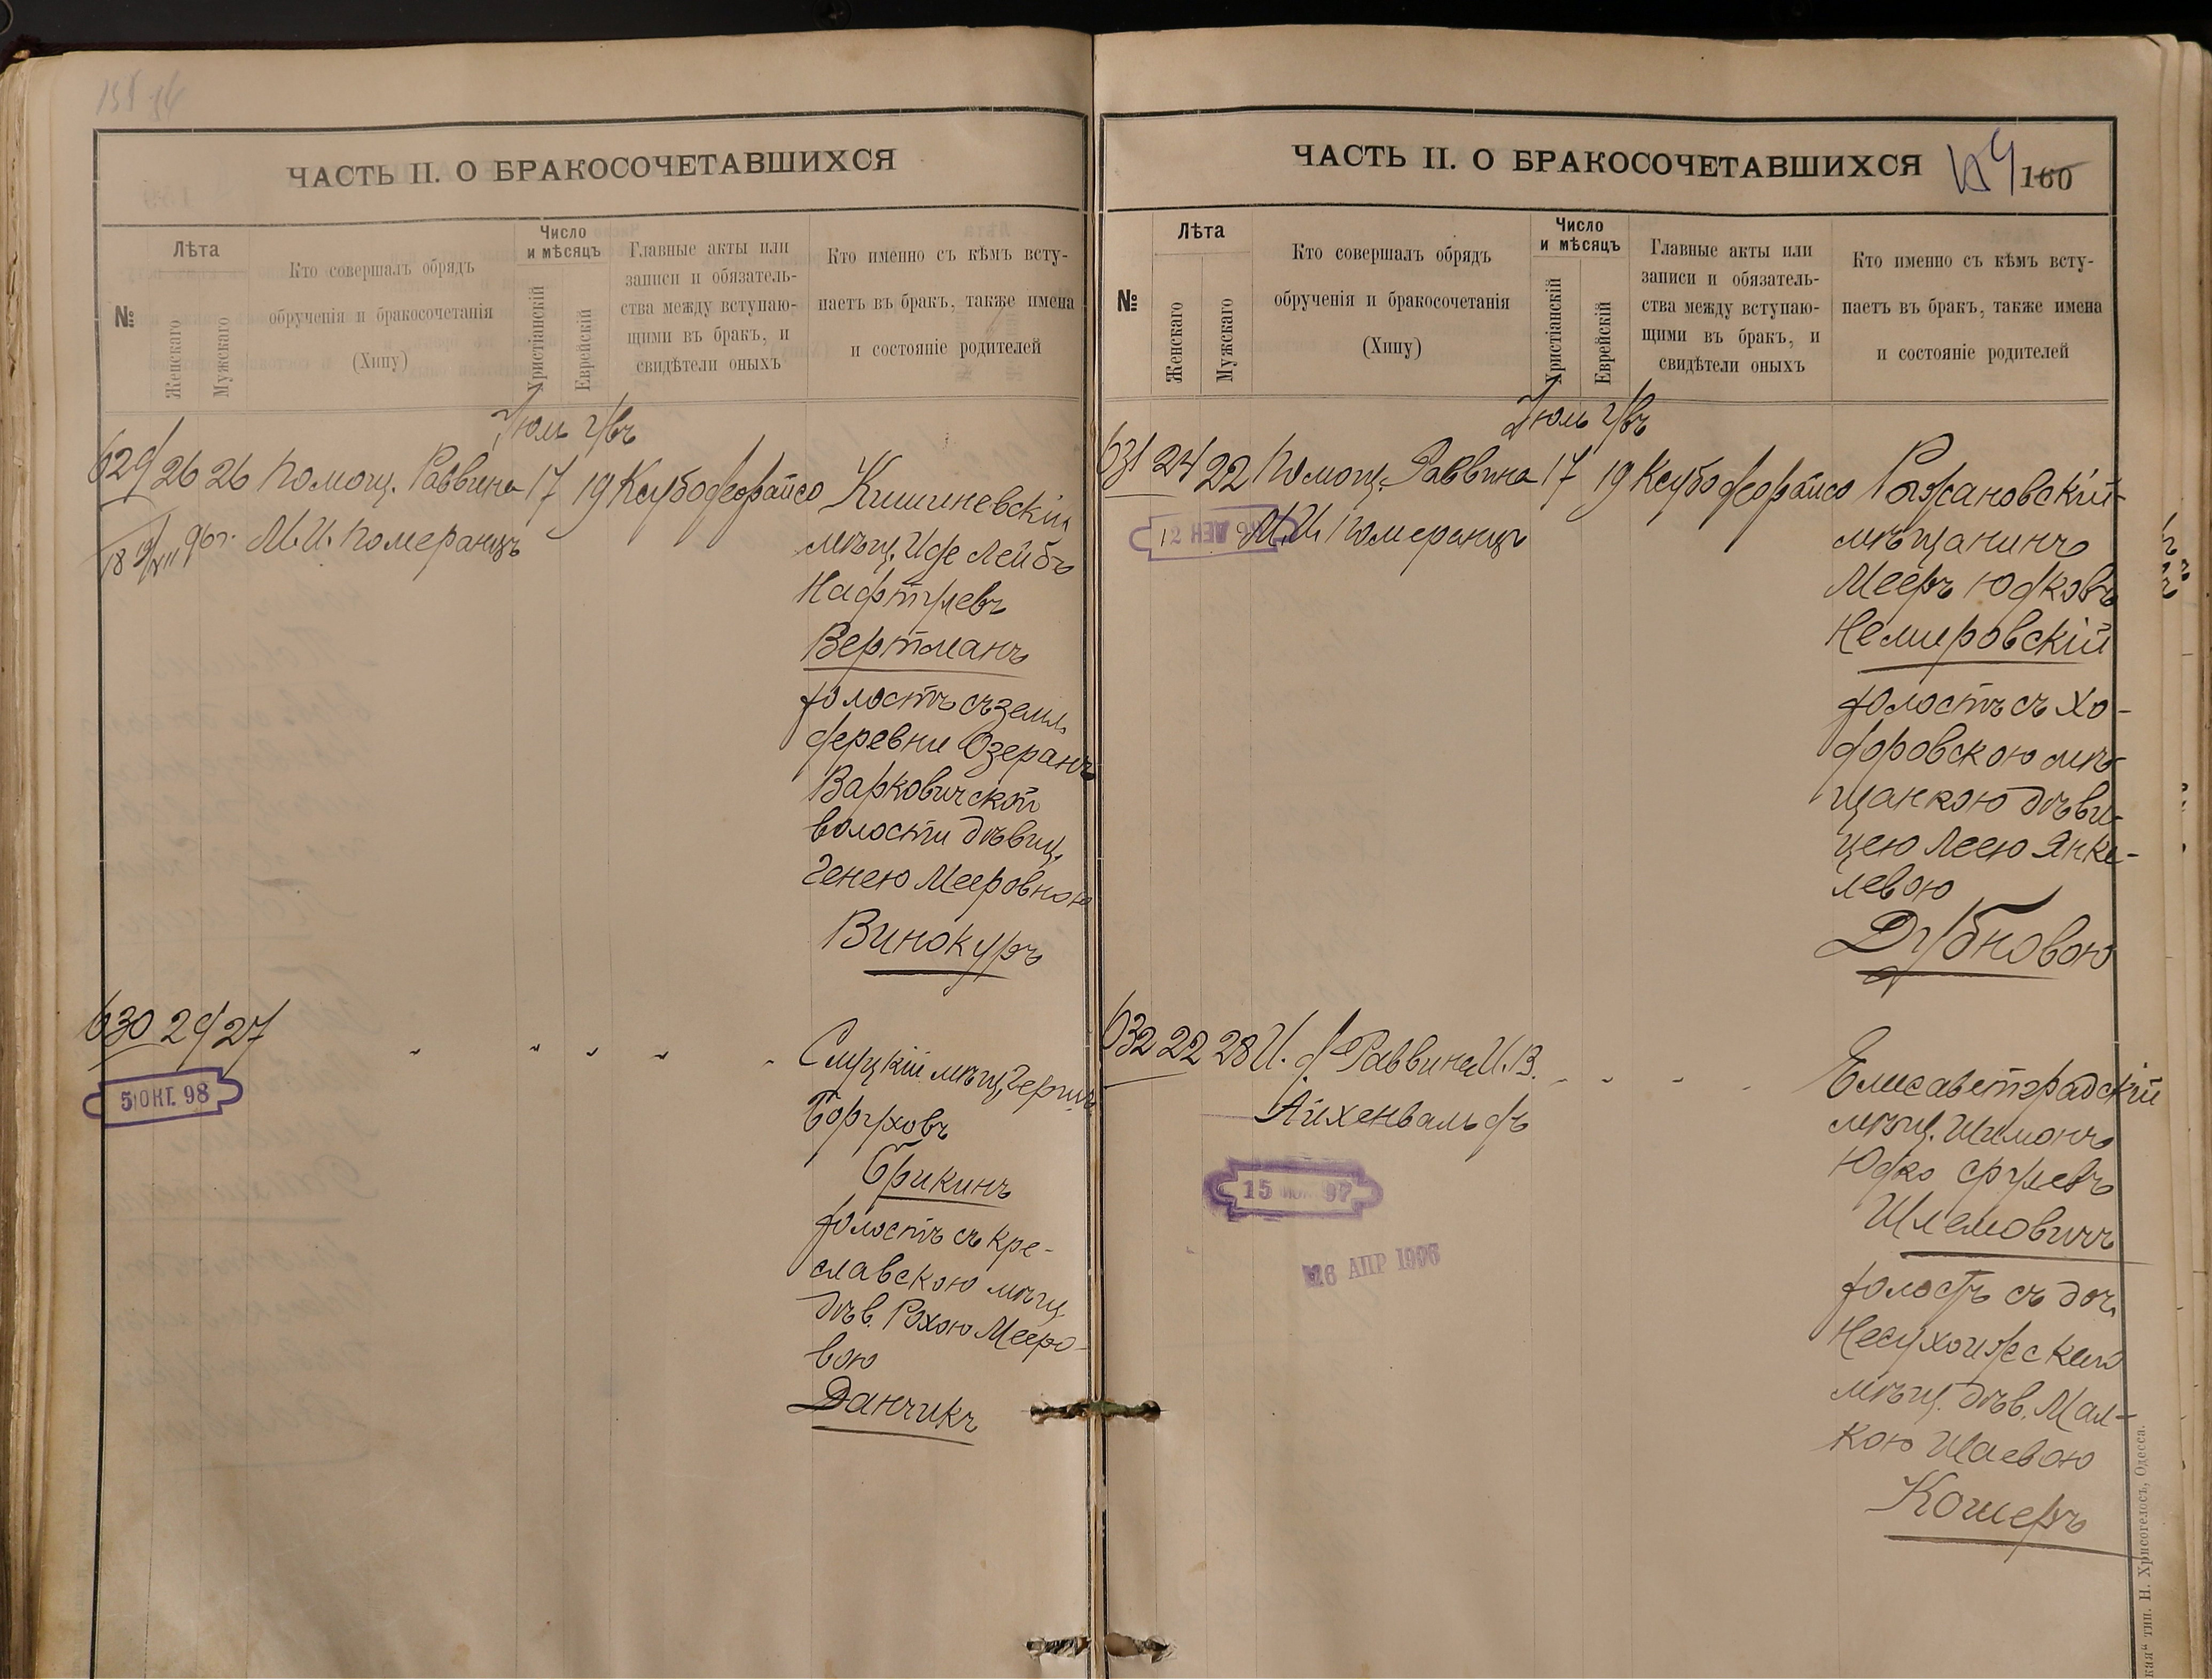 ЧАСТЬ II. О БРАКОСОЧЕТАВШИХСЯ
№
Лѣта
Женскаго
Мужскаго
Кто совершалъ обрядъ
обрученія и бракосочетанія
(Хипу)
Число
и мѣсяцъ
Христіанскій
Еврейскій
Главные акты или
записи и обязатель-
ства между вступаю-
щими въ бракъ, и
свидѣтели оныхъ
Кто именно съ кѣмъ всту-
паетъ въ бракъ, также имена
и состояніе родителей
629 26 26 Помощ. Раввина 17 19
М. И. Померанцъ
Кишиневскій
мѣщ. Иде Лейбъ
Нафтулевъ
Вертманъ
холостъ съ земл.
деревни Озеранъ
Варковичской
волости дѣвиц.
Генею Мееровною
Винокуръ
630 29 27 " " " " "
5 ОКТ. 98
Слуцкій мѣщ. Гершъ
Боруховъ
Брикинъ
холостъ съ Кре-
славскою мѣщ.
дѣв. Рохою Мееро-
вою
Данчикъ
ЧАСТЬ II. О БРАКОСОЧЕТАВШИХСЯ
160
№
Лѣта
Женскаго
Мужскаго
Кто совершалъ обрядъ
обрученія и бракосочетанія
(Хипу)
Число
и мѣсяцъ
Христіанскій
Еврейскій
Главные акты или
записи и обязатель-
ства между вступаю-
щими въ бракъ, и
свидѣтели оныхъ
Кто именно съ кѣмъ всту-
паетъ въ бракъ, также имена
и состояніе родителей
631 24 22 Помощ. Раввина 17 19
М. И. Померанцъ
мѣщанинъ
Мееръ Юдковъ
Немировскій
холостъ съ Хо-
доровскою мѣ-
щанкою дѣви-
цею Леею Янке-
левою
Дубновою
632 22 28 И. д. Раввина И. В. " " " "
Айхенвальдъ
15 97
26 АПР 1906
Елисаветградскій
мѣщ. Шимонъ
Юдко Срулевъ
Шлемовичъ
холостъ съ доч.
Несухоижской
мѣщ. дѣв. Мал-
кою Шаевою
Кошеръ
тип. Н. Хрисогелосъ, Одесса.